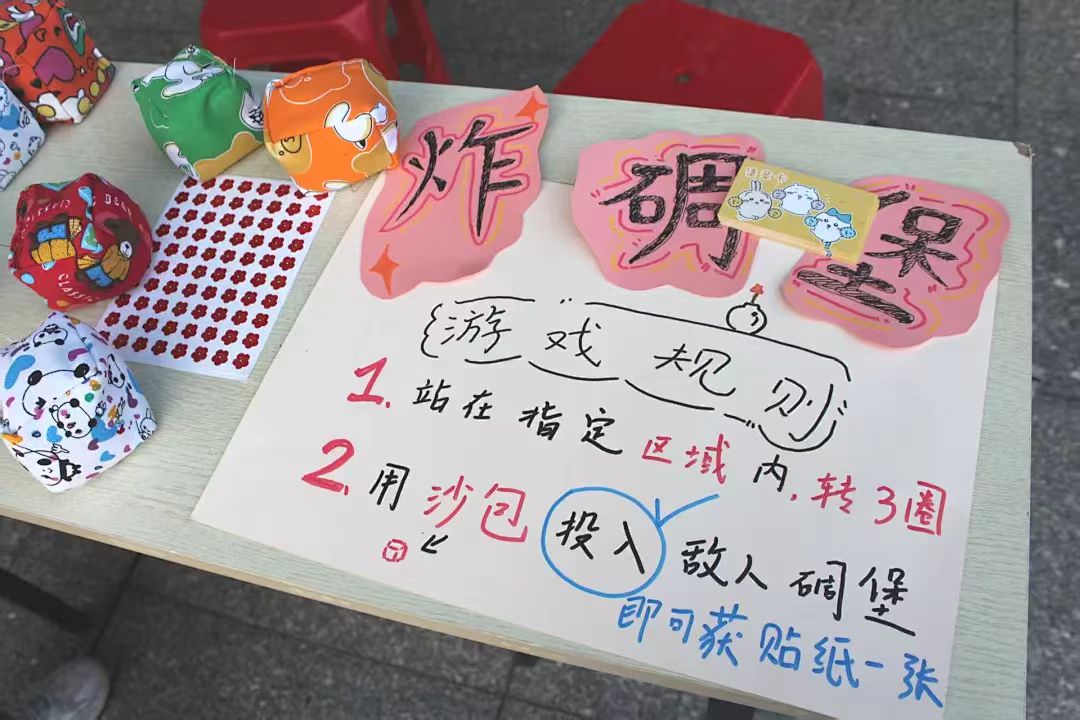 炸碉堡
游戏规则
1. 站在指定区域内,转3圈
2. 用沙包投入敌人碉堡
即可获贴纸一张
BEAR
CLASSIC